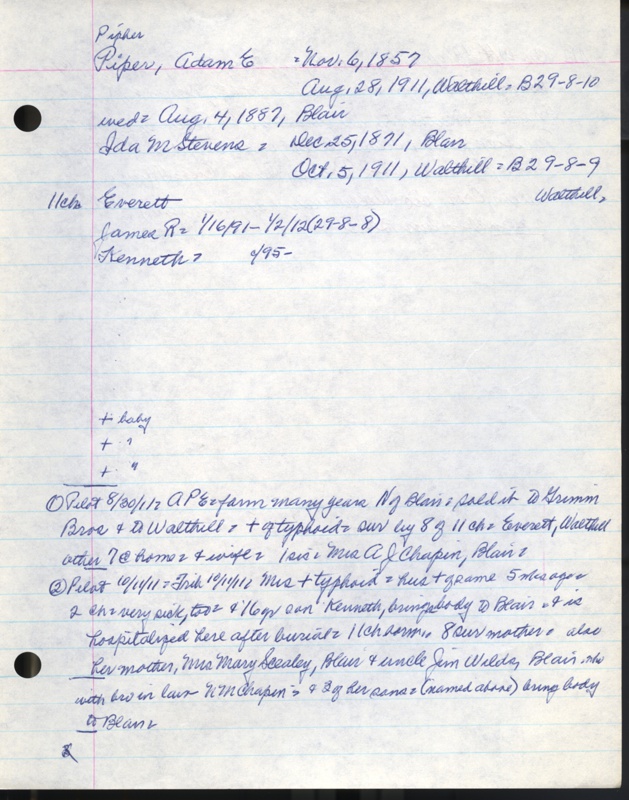 Pipher
Piper, Adam E = Nov. 6, 1857
Aug. 28, 1911, Walthill = B29-8-10
wed = Aug. 4, 1887, Blair
Ida M Stevens = Dec 25, 1871, Blair
Oct. 5, 1911, Walthill = B29-8-9
11ch= Everett Walthill,
James R = 1/16/91 - 1/2/12 (29-8-8)
Kenneth = c/95-
+ baby
+ "
+ "
① Pilot 8/30/11 = APE = farm many years N of Blair = sold it to Grimm
Bros & to Walthill = + of typhoid = sur by 8 of 11 ch = Everett, Walthill
other 7 @ home = & wife = 1 sis = Mrs A J Chapin, Blair =
② Pilot 10/11/11 = Trib 10/11/11 Mrs + typhoid = hus + of same 5 wks ago =
2 ch = very sick, too = & 16 yr son Kenneth, brings body to Blair = & is
hospitalized here after burial = 11 ch born, 8 sur mother = also
her mother, Mrs Mary Scealey, Blair & uncle Jim Wilds, Blair who
with bro in law Chapin = & 3 of her sons = (named above) bring body
to Blair =